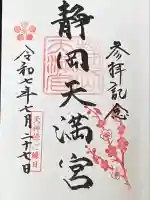 参拝記念
静岡天満宮
令和七年七月二十七日